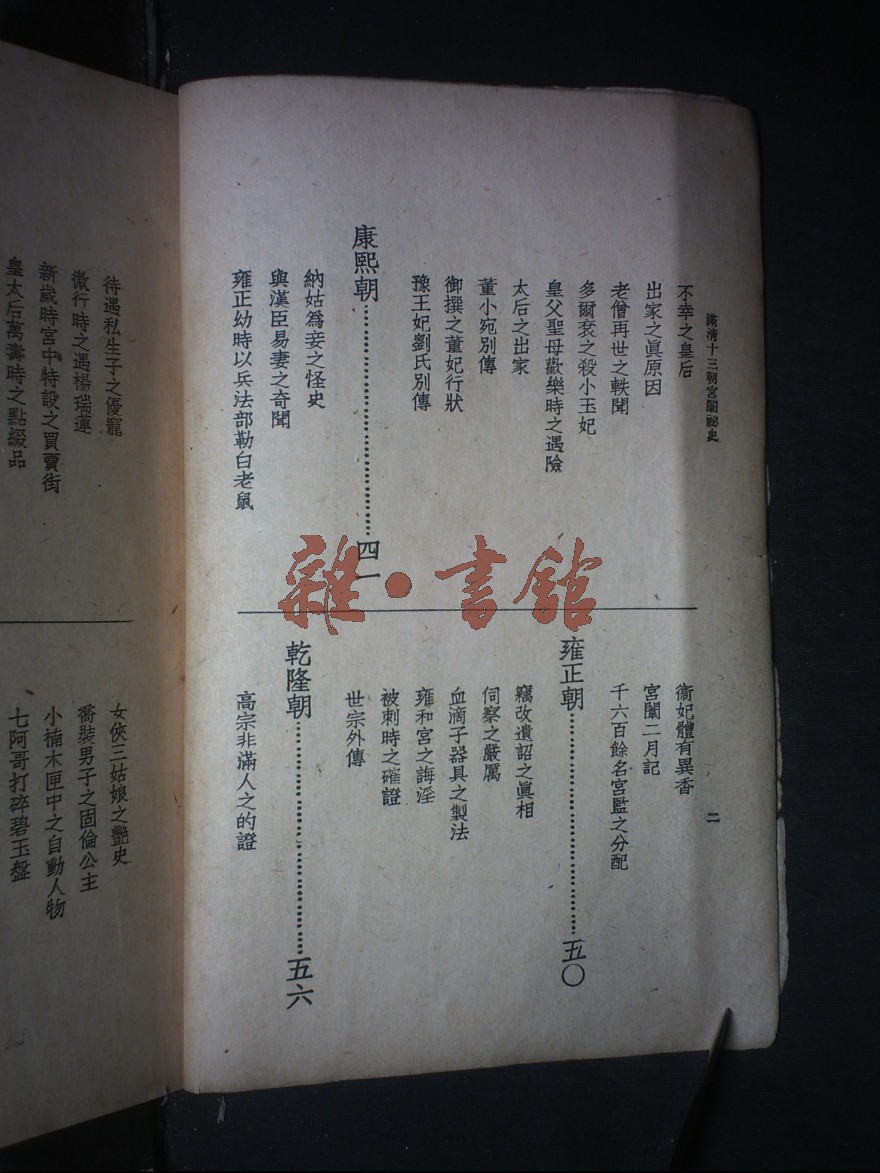 滿清十三朝宮闈祕史
不幸之皇后
出家之眞原因
老僧再世之軼聞
多爾袞之殺小玉妃
皇父聖母歡樂時之遇險
太后之出家
董小宛別傳
御撰之董妃行狀
豫王妃劉氏別傳
康熙朝……四一
納姑爲妾之怪史
與漢臣易妻之奇聞
雍正幼時以兵法部勒白老鼠
衞妃體有異香
宮闈二月記
千六百餘名宮監之分配
雍正朝……五〇
竊改遺詔之眞相
伺察之嚴厲
血滴子器具之製法
雍和宮之誨淫
被刺時之確證
世宗外傳
乾隆朝……五六
高宗非滿人之的證
二
待遇私生子之優寵
微行時之遇楊瑞蓮
新歲時宮中特設之買賣街
皇太后萬壽時之點綴品
女俠三姑娘之豔史
喬裝男子之固倫公主
小楠木匣中之自動人物
七阿哥打碎碧玉盤
雜·書館